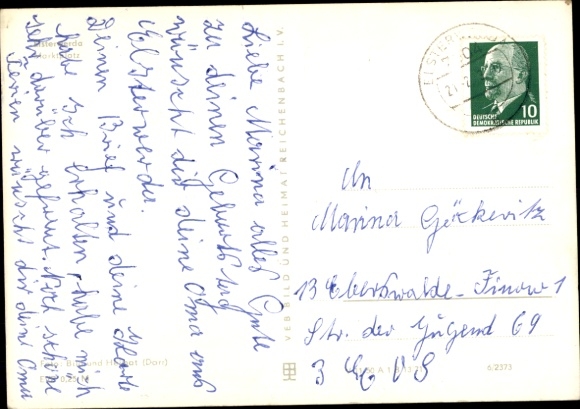 Elsterwerda
Marktplatz
Liebe Marina alles Gute
zu deinen Geburtstag
wünscht dir deine Oma aus
Elsterwerda.
Deinen Brief und deine Karte
habe ich erhalten, habe mich
sehr darüber gefreut. Noch schöne
Ferien wünscht dir deine Oma
Foto: Bild und Heimat (Darr)
VEB BILD UND HEIMAT REICHENBACH I. V.
10
DEUTSCHE
DEMOKRATISCHE REPUBLIK
An
Marina Göckeritz
13 Eberswalde-Finow 1
Str. der Jugend 69